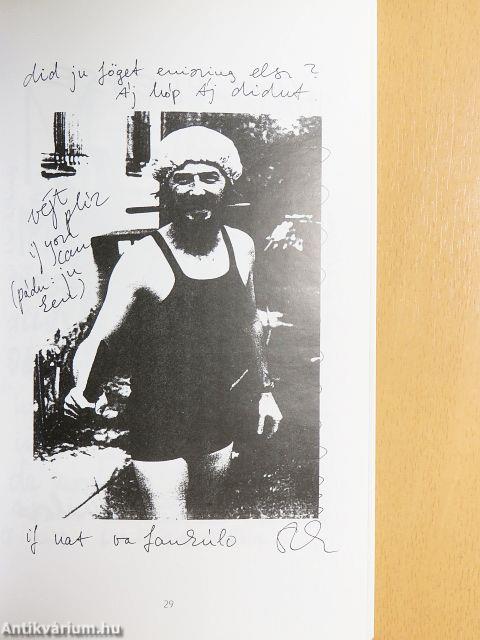 did ju föget enising elsz?
Áj hóp Áj didnt
véjt
pliz
if you
can
(pádn: ju
ken)
if nat va fankúlo
29
Antikvárium.hu